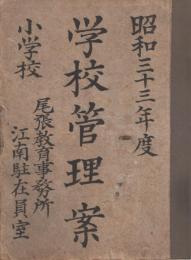 昭和三十三年度
学校管理案
小学校
尾張教育事務所
江南駐在員室